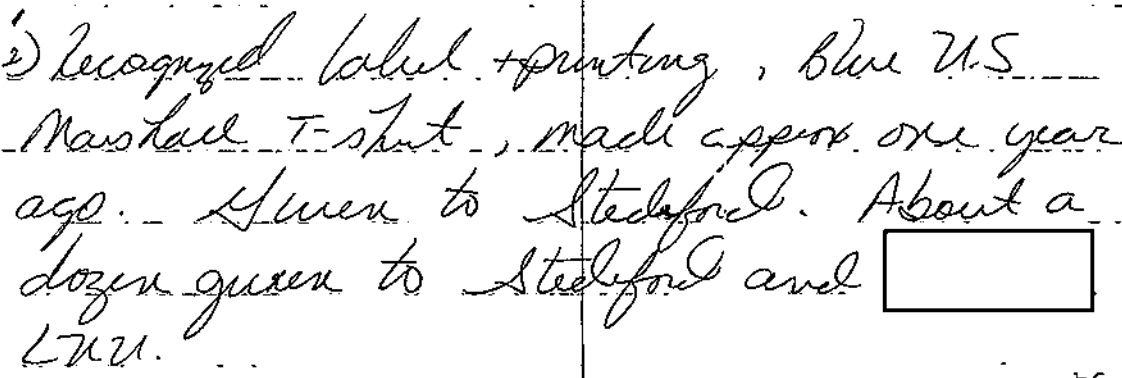 2) Recognized label + printing, Blue U.S
Marshall T-shirt, made approx one year
ago. Given to Stedeford. About a
dozen given to Stedeford and
LNU.